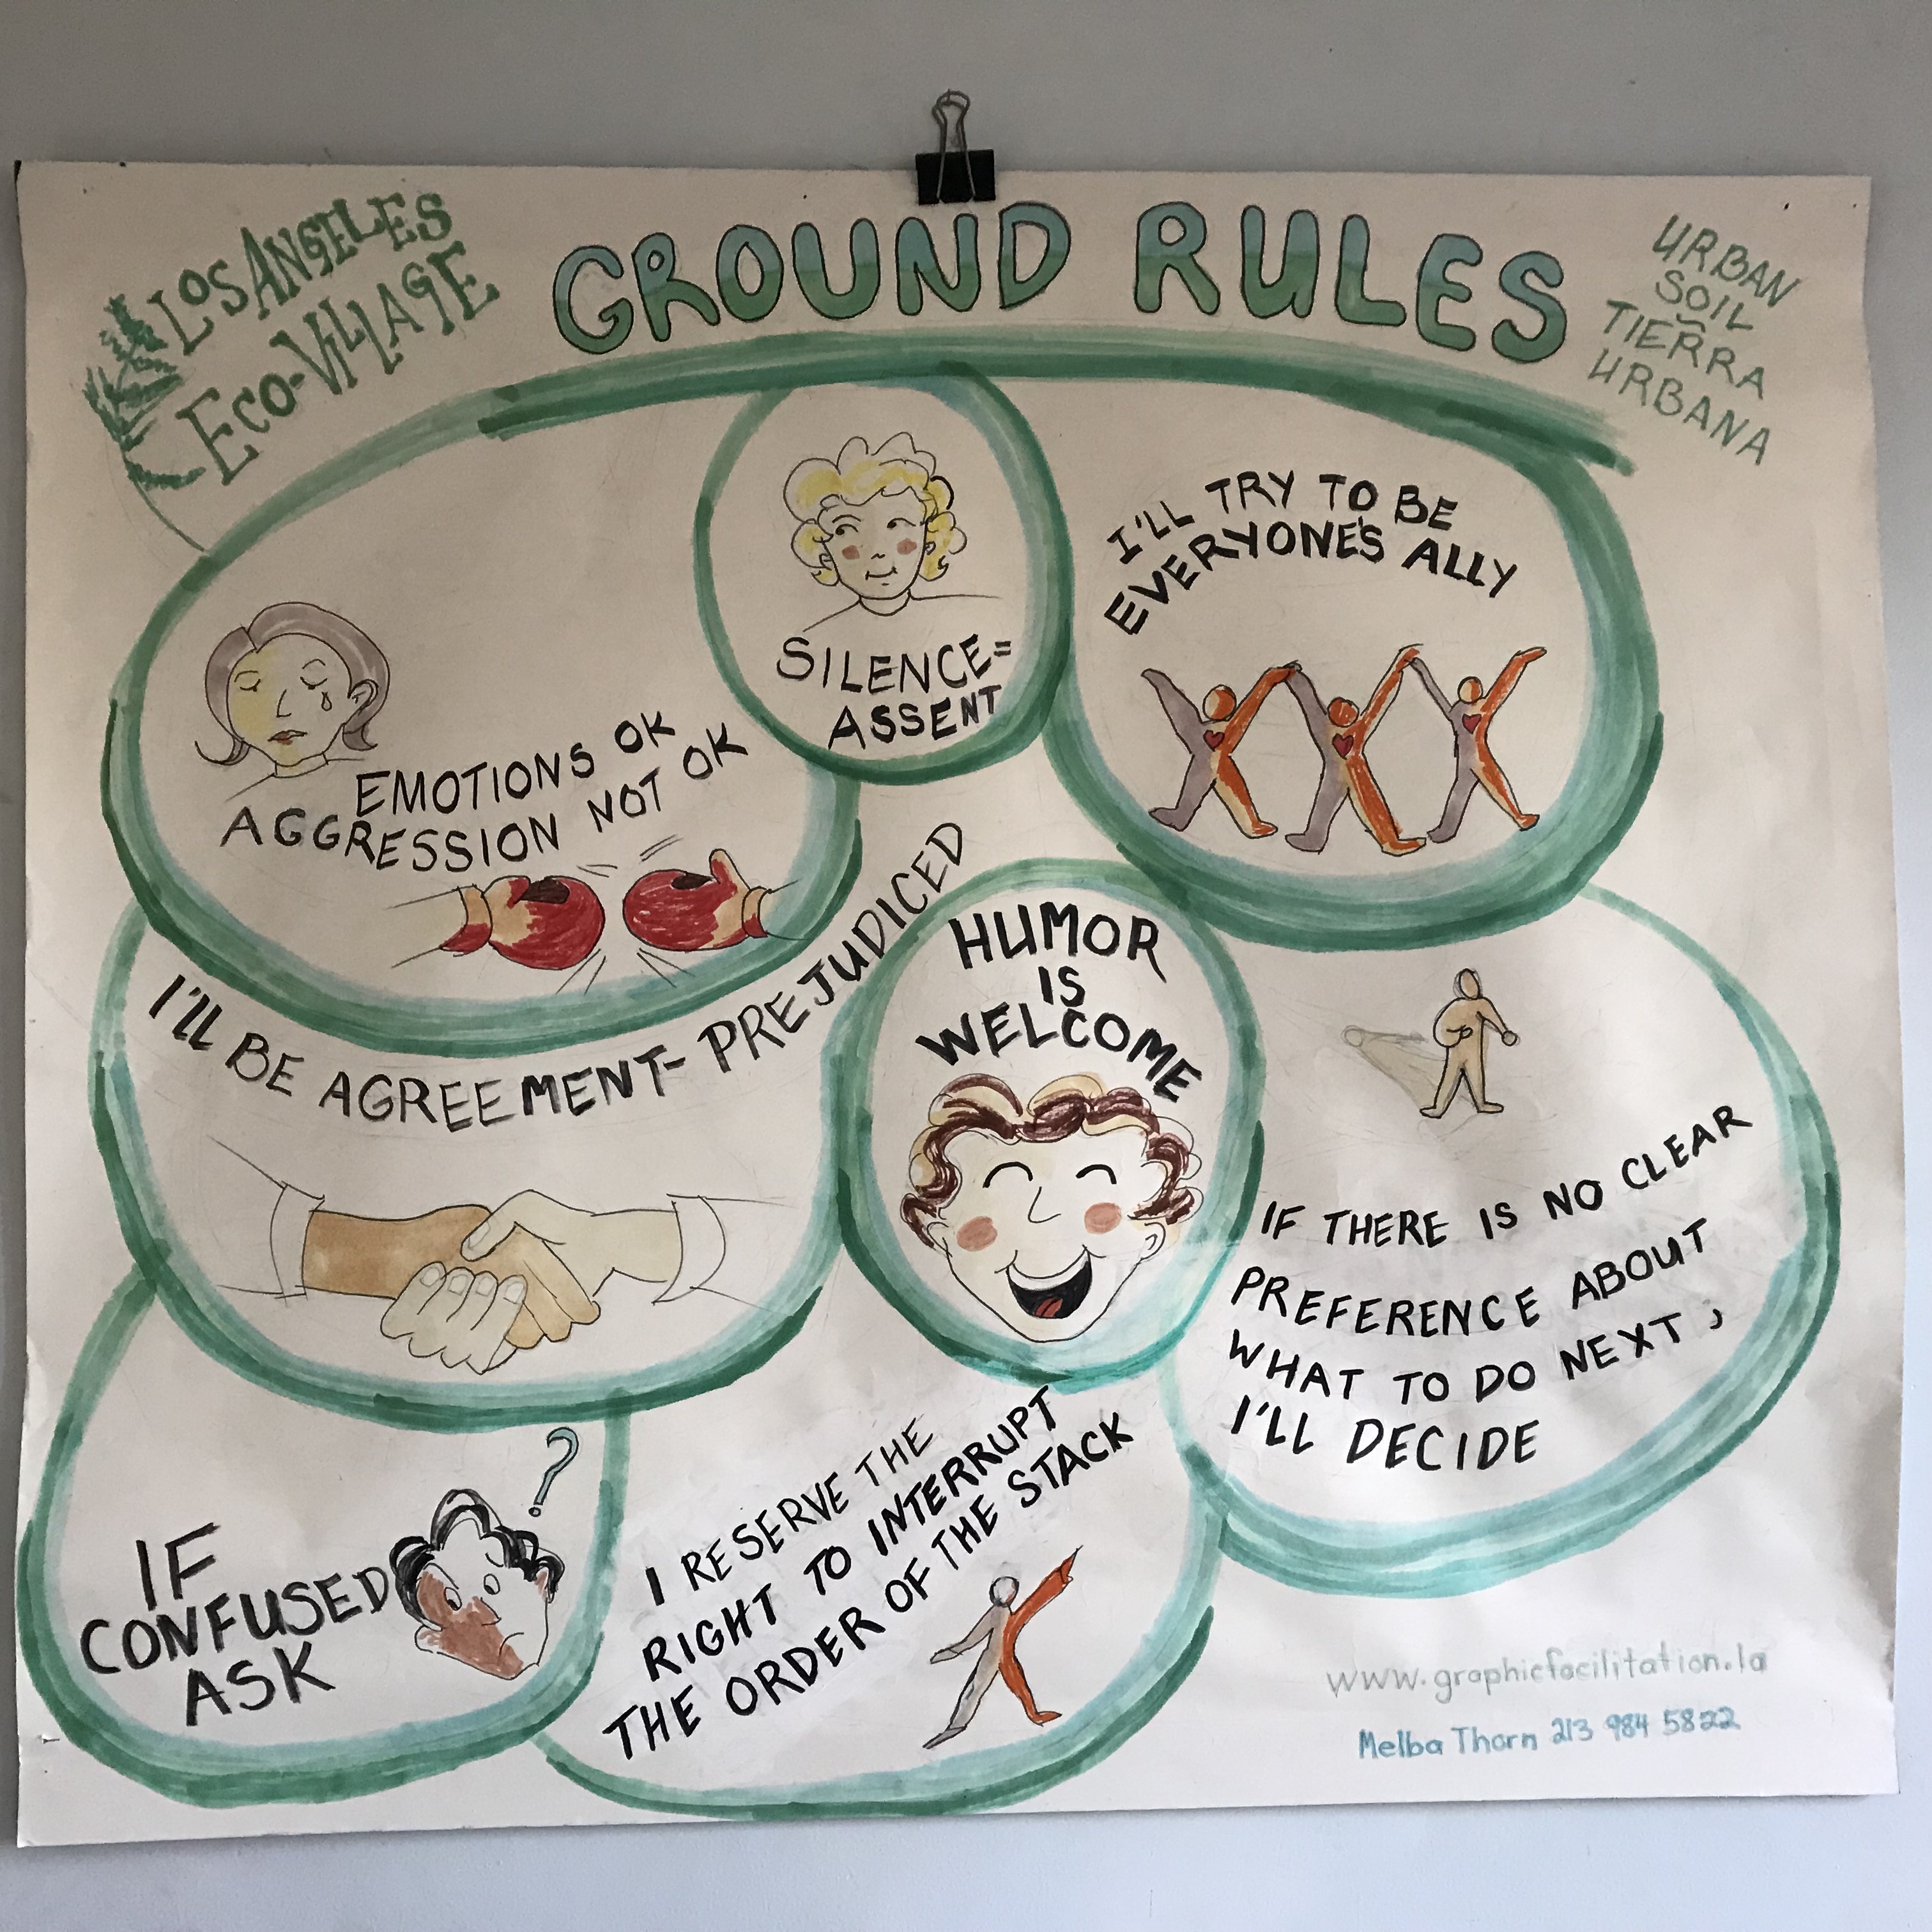 LOS ANGELES
ECO-VILLAGE
GROUND RULES
URBAN
SOIL
~
TIERRA
URBANA
EMOTIONS OK
AGGRESSION NOT OK
SILENCE=
ASSENT
I'LL TRY TO BE
EVERYONE'S ALLY
I'LL BE AGREEMENT-PREJUDICED
HUMOR
IS
WELCOME
IF THERE IS NO CLEAR
PREFERENCE ABOUT
WHAT TO DO NEXT,
I'LL DECIDE
IF
CONFUSED
ASK
?
I RESERVE THE
RIGHT TO INTERRUPT
THE ORDER OF THE STACK
www.graphicfacilitation.la
Melba Thorn 213 984 5822